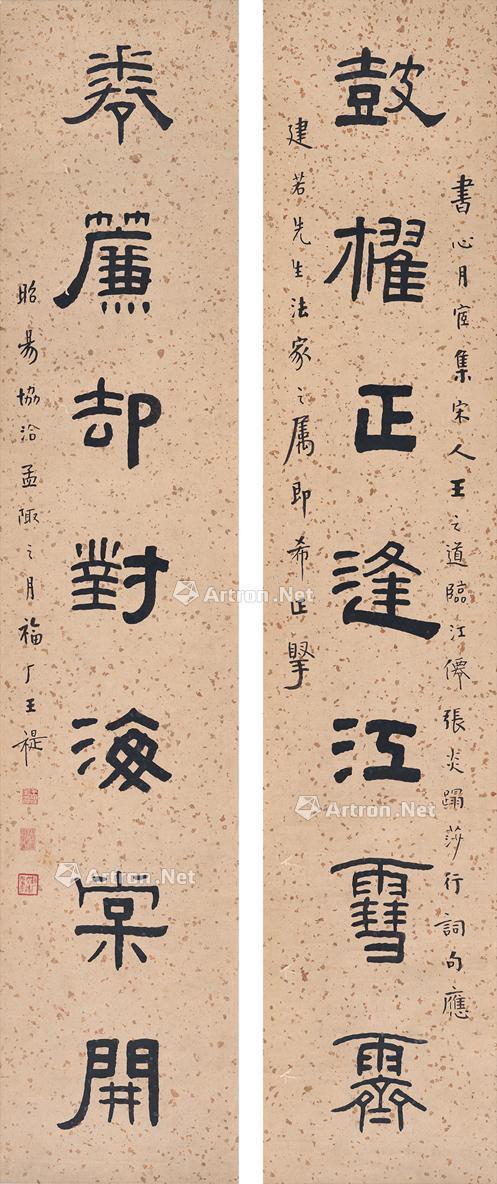 書心月宧集宋人王之道臨江僊張炎蹋莎行詞句應
鼓櫂正逢江雪霽
建若先生法家之属即希正擥
卷簾却對海棠開
昭昜協洽孟陬之月福厂王禔
Artron.Net
Artron.Net
Artron.Net
Artron.Net
Artron.Net
Artron.Net